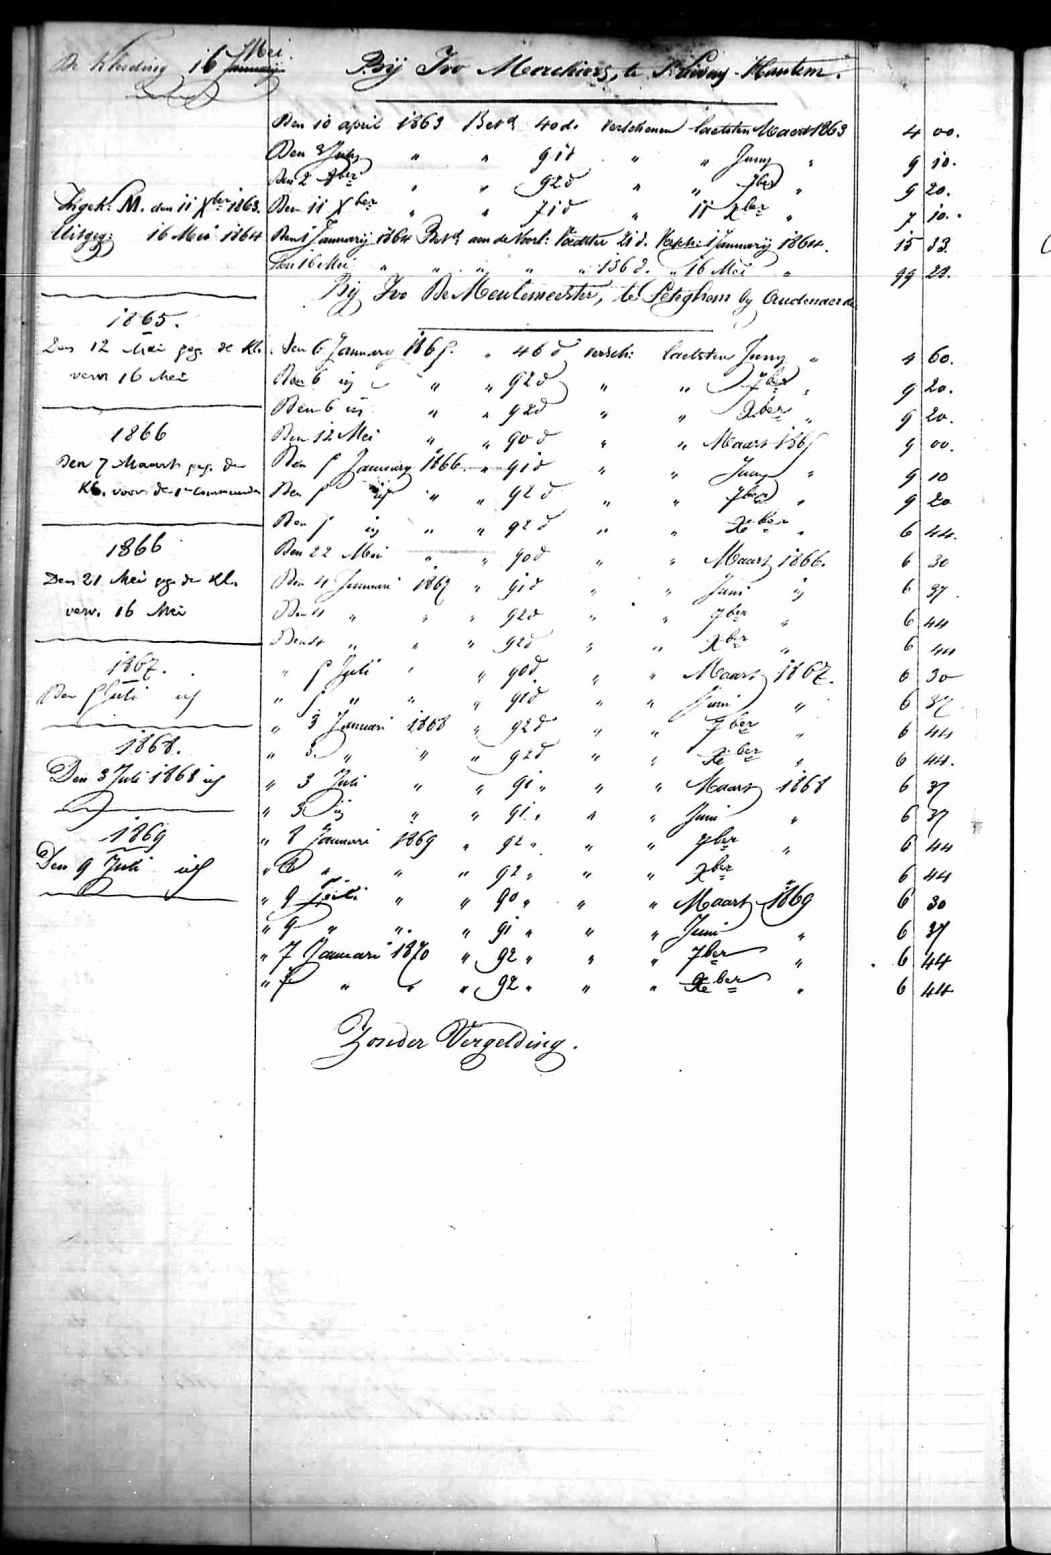 De Kleeding 16 Mei Januarij
Bij Ivo Merckiers, te St Lievens-Hautem.
Den 10 april 1863 Betd 40 d. verschenen laetsten Maert 1863 4 00.
Den 3 July " " 91 d " " Juny " 9 10.
Den 2 8ber " " 92 d " " 7ber " 9 20.
Ingek: M. den 11 Xber 1863.
Den 11 Xber " " 71 d " 11 Xber " 7 10.
Uitgeg: 16 Mei 1864
Den 1 Januarij 1864 Betd aan de 21 d. Versch: 1 Januarij 1864. 15 33.
Den 16 Mei " " " " " 136 d. " 16 Mei " 99 28.
Bij Ivo De Meulemeester, te Peteghem by Audenaerde
1865.
Den 12 Mei geg. de Kl.
verv 16 Mei
Den 6 January 1865. " 46 d versch: laetsten Juny " 4 60.
Den 6 id " " 92 d " " 7ber " 9 20.
Den 6 id " " 92 d " " Xber " 9 20.
1866
Den 7 Maart geg. de
Kl. voor de 1e Communie
Den 12 Mei " " 90 d " " Maart 1865 9 00.
Den 5 January 1866. " 91 d " " Juny " 9 10
Den 5 id " " 92 d " " 7ber " 9 20
Den 5 id " " 92 d " " Xber " 6 44.
1866
Den 21 Mei geg. de Kl.
verv. 16 Mei
Den 22 Mei " " 90 d " " Maart 1866. 6 30
Den 4 Januari 1867 " 91 d " " Juni id 6 37.
Den 4 " " " 92 d " " 7ber " 6 44
Den 4 " " " 92 d " " Xber " 6 44
1867.
Den 5 Juli id
" 5 Juli " " 90 d " " Maart 1867. 6 30
" 5 " " " 91 d " " Juni " 6 37
" 3 Januari 1868 " 92 d " " 7ber " 6 44
1868.
Den 3 Juli 1868 id
" 3 " " " 92 d " " Xber " 6 44.
" 3 Juli " " 91 " " " Maart 1868 6 37
" 3 id " " 91 " " " Juni " 6 37
1869
Den 9 Juli id
" 8 Januari 1869 " 92 " " " 7ber " 6 44
" 8 " " " 92 " " " Xber 6 44
" 9 Juli " " 90 " " " Maart 1869 6 30
" 9 " " " 91 " " " Juni " 6 37
" 7 Januari 1870 " 92 " " " 7ber " 6 44
" 7 " " " 92 " " " Xber " 6 44
Zonder Vergelding.